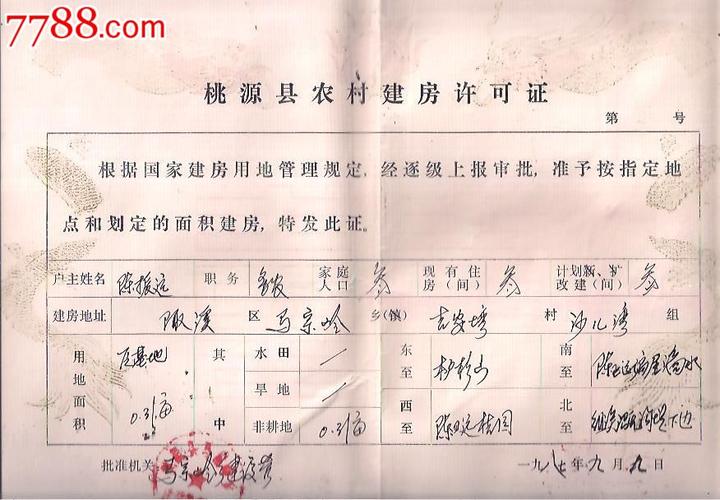 7788.com
桃源县农村建房许可证
第 号
根据国家建房用地管理规定,经逐级上报审批,准予按指定地
点和划定的面积建房,特发此证。
户主姓名 陈振运 职务 务农 家庭人口 叁 现有住房(间) 叁 计划新、扩改建(间) 叁
建房地址 陬溪 区 马宗岭 乡(镇) 吉安塆 村 沙儿湾 组
用地面积 瓦基地 0.31亩 其中 水田 / 东至 杉山 南至
旱地 /
非耕地 0.31亩 西至 北至
批准机关 马宗岭 一九八七年九月九日